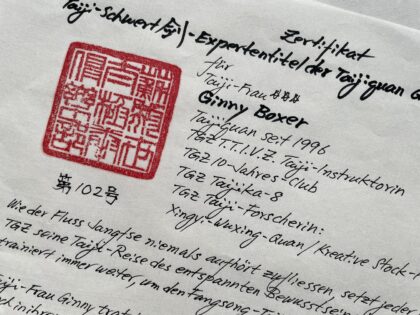 Zertifikat
Taiji-Schwert (剑)-Expertentitel der Taijiquan
für
Taiji-Frau
Ginny Boxer
Taijiquan seit 1996
TGZ T.T.I.V.Z. Taiji-Instruktorin
TGZ 10-Jahres-Club
TGZ Taijika-8
TGZ Taiji-Forscherin:
Xingyi-Wuxing-Quan/Kreative Stock-
第102号
Wie der Fluss Jangtse niemals aufhört zu fliessen, setzt jeder
TGZ seine Taiji-Reise des entspannten Bewusstseins
trainiert immer weiter, um den Fangsong-
Taiji-Frau Ginny